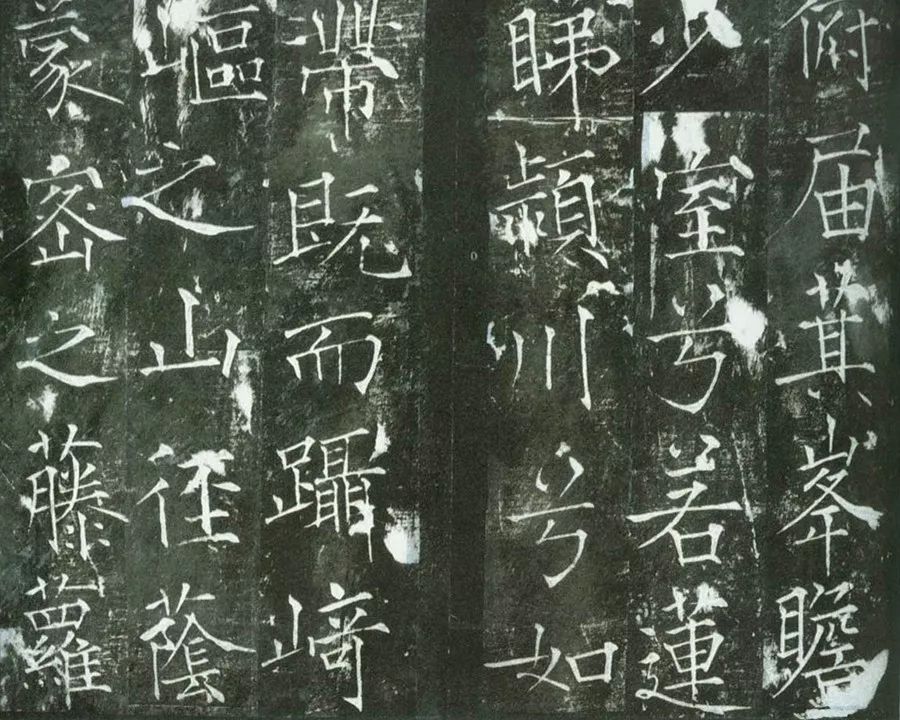 俯届其峯瞻
少室兮若蓮
睇潁川兮如
帶既而躡崎
嶇之山徑蔭
蒙密之藤蘿